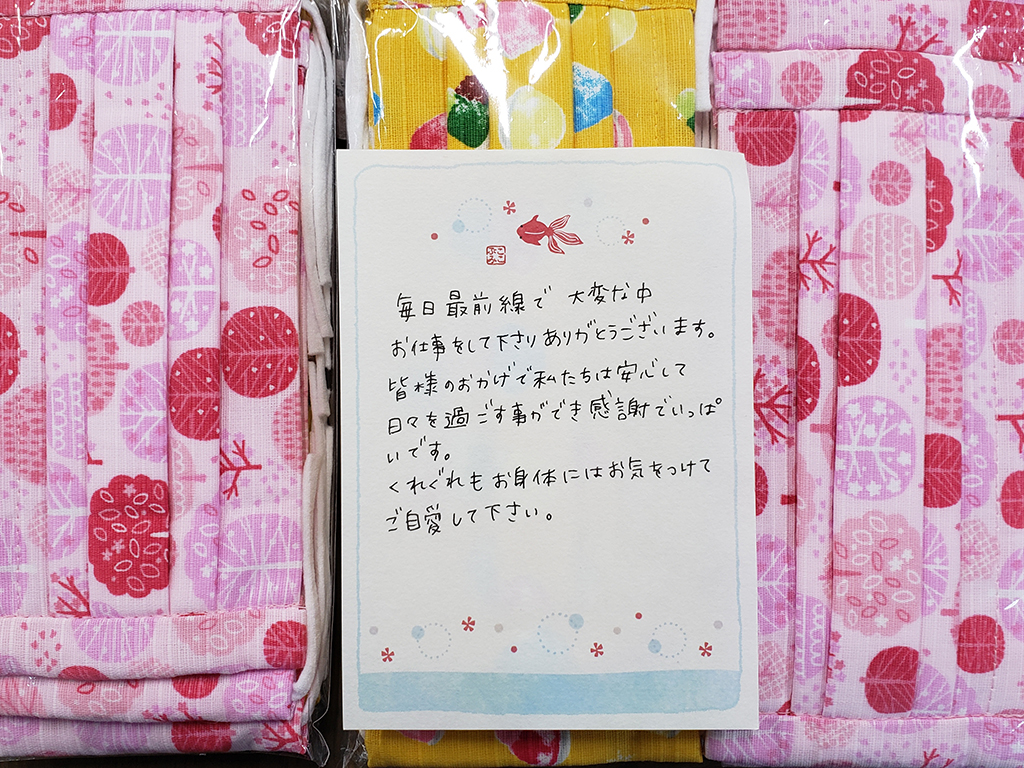 毎日最前線で 大変な中
お仕事をして下さりありがとうございます。
皆様のおかげで私たちは安心して
日々を過ごす事ができ感謝でいっぱ
いです。
くれぐれもお身体にはお気をつけて
ご自愛して下さい。